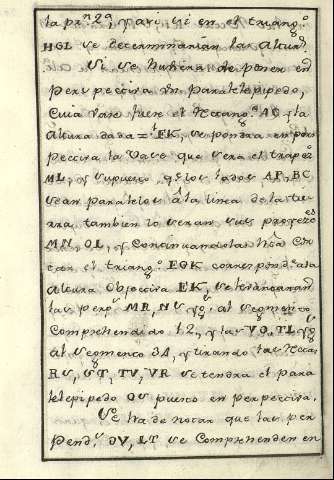 la pr.ª 2.ª, y assi si en el triang.º
HGL se determinarian las alturas.
Si se hubiera de poner en
perspectiva un paralelepipedo,
cuia vase fuese el rectang.º AC y la
altura dada = EK, se pondra en pers
pectiva la vase que sera el trapez.º
ML, y supuesto q.e los lados AP, BC,
sean paralelos â la linea de la tie
rra tambien lo seran sus proyecc.es
MN, OL, y continuandolas h.ta cor
tar el triang.º EGK correspond.te a la
altura objectiva EK, se levantaran
las perp.s MR, NS yg.s al segmento
comprehendido 12, y las VO, TL, yg.s
al segmento 34, y tirando las rectas
RS, ST, TV, VR se tendra el para
lelepipedo OS puesto en perspectiva.
Se ha de notar que las per
pend.s OV, LT se comprehenden en